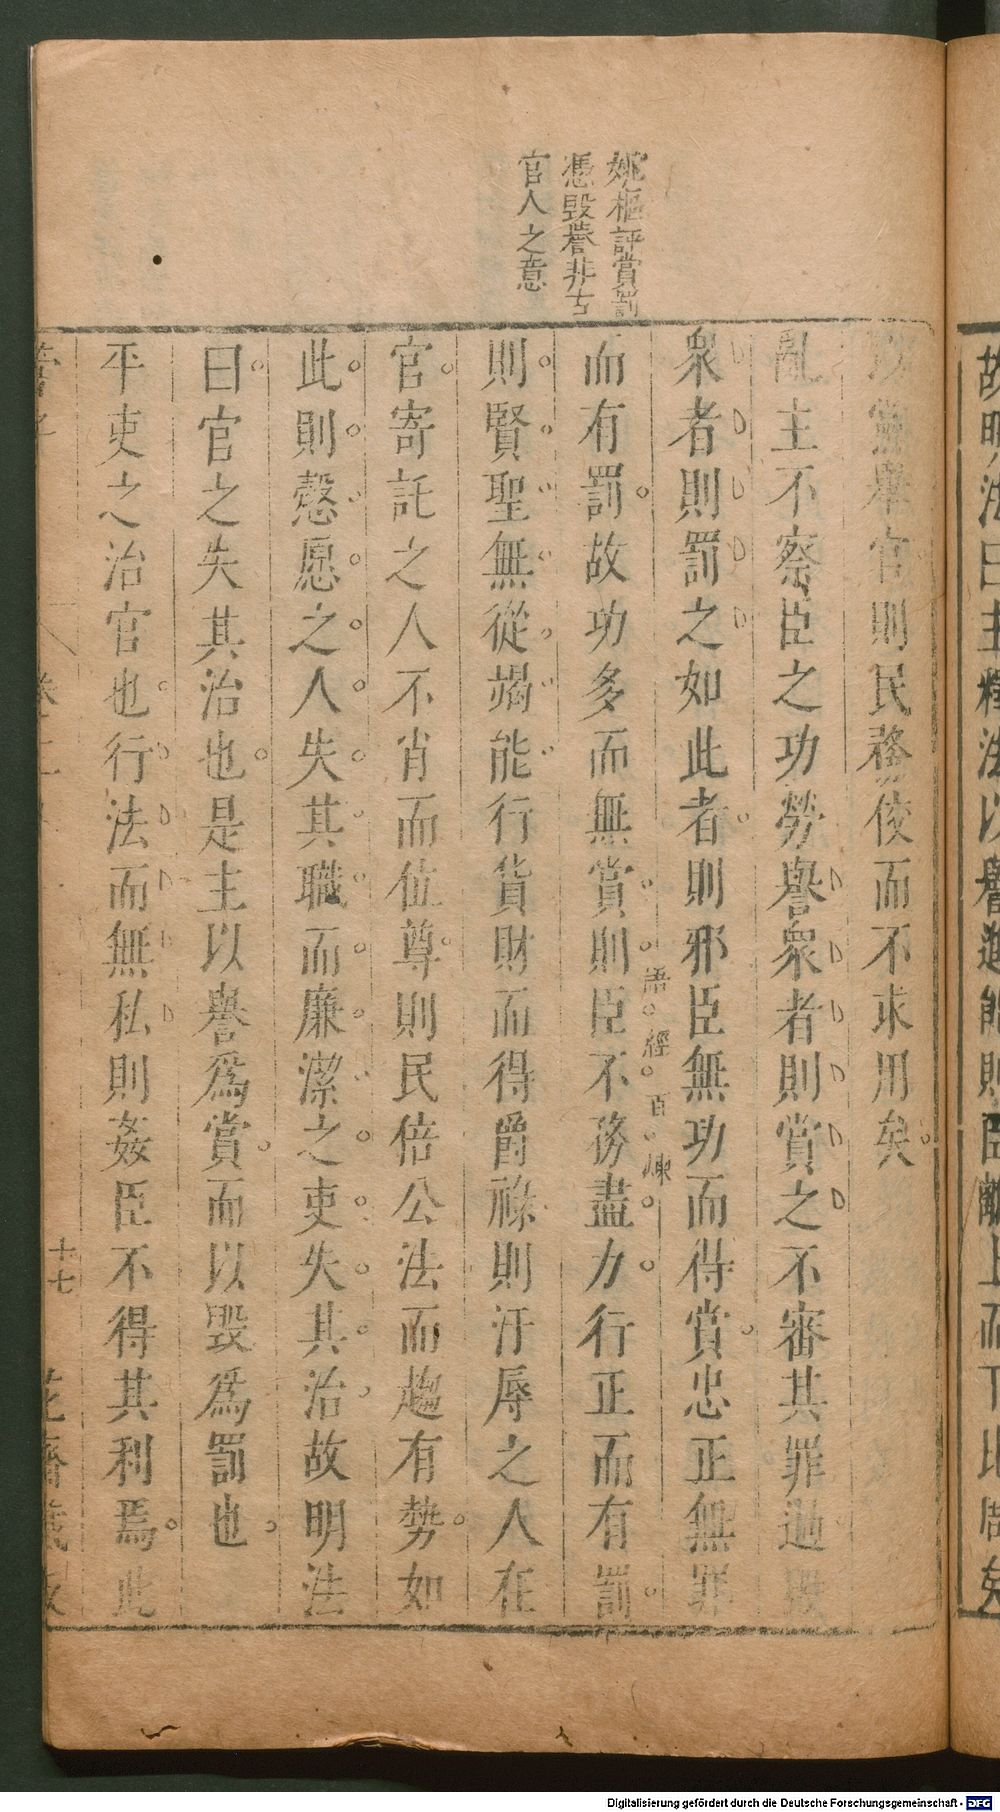 故明法曰主釋法以譽進能則臣離上而下比周矣
以黨舉官則民務佼而不求用矣
亂主不察臣之功勞譽衆者則賞之不審其罪過毀
衆者則罰之如此者則邪臣無功而得賞忠正無罪
而有罰故功多而無賞則臣不務盡力行正而有罰
語經百煉
則賢聖無從竭能行貨財而得爵祿則汙辱之人在
官寄託之人不肖而位尊則民倍公法而趨有勢如
此則愨愿之人失其職而廉潔之吏失其治故明法
曰官之失其治也是主以譽爲賞而以毀爲罰也
平吏之治官也行法而無私則姦臣不得其利焉此
姚樞評賞罰
憑毀譽非古
官人之意
管子
卷二十一
十七
花齋藏板
Digitalisierung gefördert durch die Deutsche Forschungsgemeinschaft - DFG